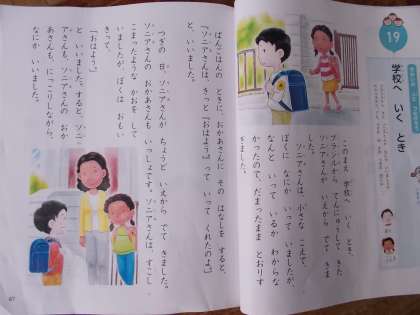 19
学校へ いく とき
このまえ 学校へ いく とき、
ブラジルから てんにゅうして きた
ソニアさんが いえから でて きま
した。
ソニアさんは、小さな こえで、
ぼくに なにか いって いましたが、
なんと いって いるか わからな
かったので、だまったまま とおりす
ぎました。
ばんごはんの ときに、おかあさんに その はなしを すると、
「ソニアさんは、きっと『おはよう。』って いって くれたのよ。」
と、いいました。
つぎの 日、ソニアさんが ちょうど いえから でて きました。
ソニアさんの おかあさんも いっしょです。ソニアさんは、すこし
こまったような かおを して
いましたが、ぼくは おもい
きって、
「おはよう。」
と いいました。すると、ソニ
アさんも、ソニアさんの おか
あさんも、にっこりしながら、
なにか いいました。
67